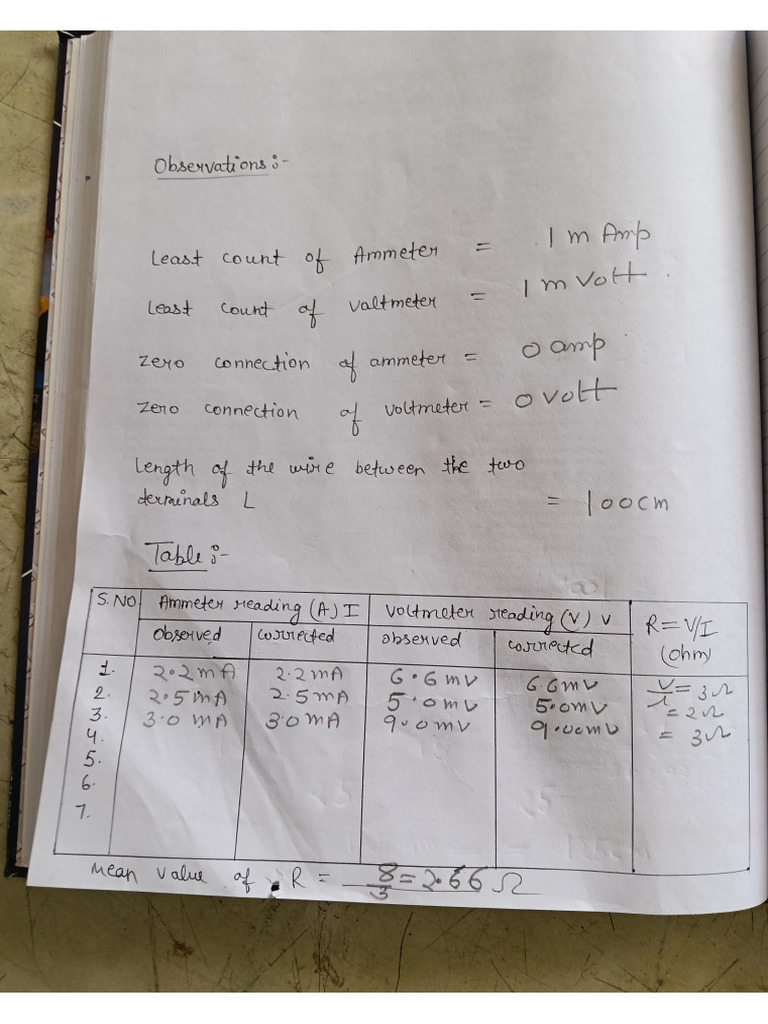 Observations:-
Least count of Ammeter = 1 m Amp
Least count of valtmeter = 1 m Volt
Zero connection of ammeter = 0 amp
Zero connection of voltmeter = 0 volt
Length of the wire between the two
terminals L = 100cm
Table:-
S.NO Ammeter reading (A) I Voltmeter reading (V) V R = V/I
observed corrected observed corrected (ohm)
1. 2.2 mA 2.2 mA 6.6 mv 6.6 mv V/I = 3Ω
2. 2.5 mA 2.5 mA 5.0 mv 5.0 mv = 2Ω
3. 3.0 mA 3.0 mA 9.0 mv 9.00 mv = 3Ω
4.
5.
6.
7.
Mean value of R = 8/3 = 2.66 Ω